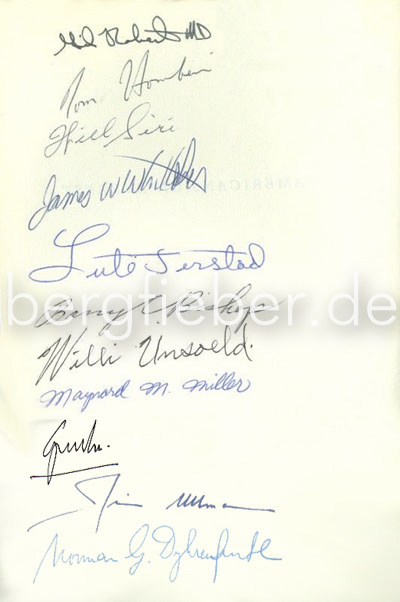 Gil Roberts MD
Tom Hornbein
Will Siri
James W Whittaker
AMERICAN
Lute Jerstad
bergfieber.de
Barry C. Bishop
Willi Unsoeld.
Maynard M. Miller
Jim Ullman
Norman G. Dyhrenfurth